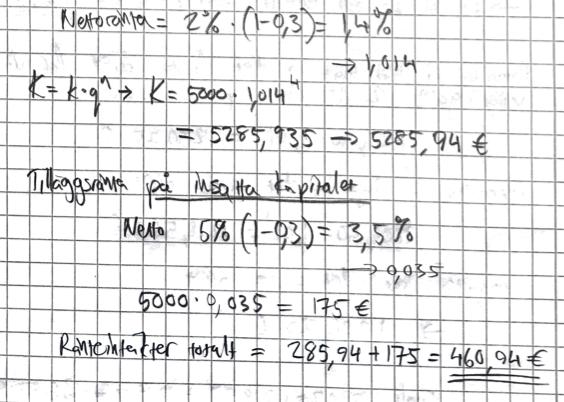 Nettoränta = 2% · (1-0,3) = 1,4%
→ 1,014
K = k·qⁿ → K = 5000 · 1,014⁴
= 5285,935 → 5285,94 €
Tilläggsränta på insatta kapitalet
Netto 5% (1-0,3) = 3,5%
→ 0,035
5000 · 0,035 = 175 €
Ränteintäkter totalt = 285,94 + 175 = 460,94 €